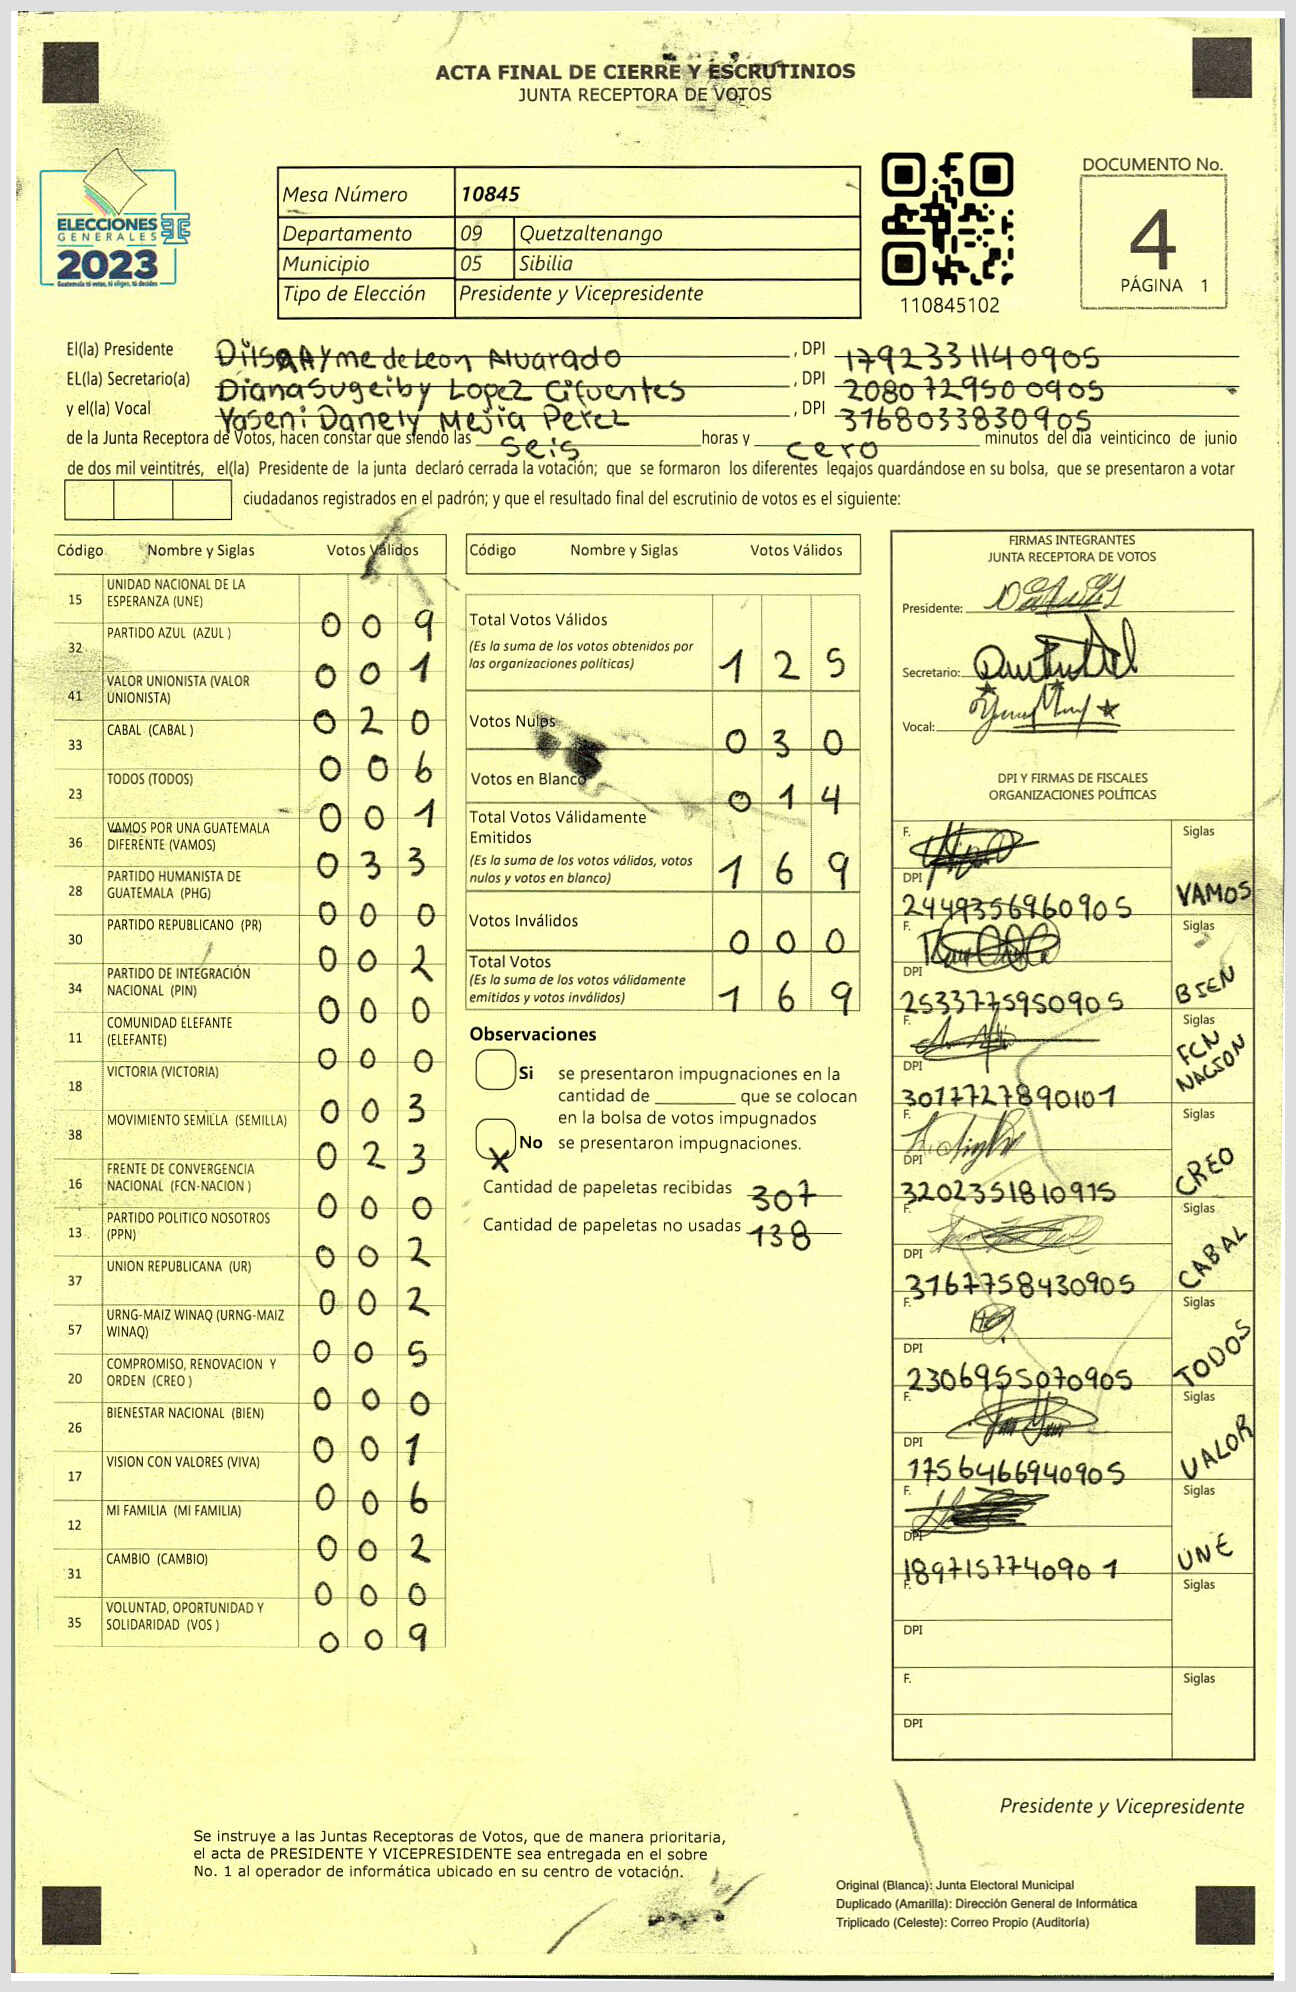 ACTA FINAL DE CIERRE Y ESCRUTINIOS
JUNTA RECEPTORA DE VOTOS
ELECCIONES
GENERALES
2023
Guatemala tú votas, tú eliges, tú decides
Mesa Número 10845
Departamento 09 Quetzaltenango
Municipio 05 Sibilia
Tipo de Elección Presidente y Vicepresidente
110845102
DOCUMENTO No.
4
PÁGINA 1
El(la) Presidente Dilsa Ayme de Leon Alvarado , DPI 1792331140905
EL(la) Secretario(a) Diana Sugeiby Lopez Cifuentes , DPI 2080729500905
y el(la) Vocal Yaseni Danely Mejia Perez , DPI 3768033830905
de la Junta Receptora de Votos, hacen constar que siendo las seis horas y cero minutos del día veinticinco de junio
de dos mil veintitrés, el(la) Presidente de la junta declaró cerrada la votación; que se formaron los diferentes legajos guardándose en su bolsa, que se presentaron a votar
ciudadanos registrados en el padrón; y que el resultado final del escrutinio de votos es el siguiente:
Código Nombre y Siglas Votos Válidos
15 UNIDAD NACIONAL DE LA ESPERANZA (UNE) 0 0 9
32 PARTIDO AZUL (AZUL ) 0 0 1
41 VALOR UNIONISTA (VALOR UNIONISTA) 0 2 0
33 CABAL (CABAL ) 0 0 6
23 TODOS (TODOS) 0 0 1
36 VAMOS POR UNA GUATEMALA DIFERENTE (VAMOS) 0 3 3
28 PARTIDO HUMANISTA DE GUATEMALA (PHG) 0 0 0
30 PARTIDO REPUBLICANO (PR) 0 0 2
34 PARTIDO DE INTEGRACIÓN NACIONAL (PIN) 0 0 0
11 COMUNIDAD ELEFANTE (ELEFANTE) 0 0 0
18 VICTORIA (VICTORIA) 0 0 3
38 MOVIMIENTO SEMILLA (SEMILLA) 0 2 3
16 FRENTE DE CONVERGENCIA NACIONAL (FCN-NACION ) 0 0 0
13 PARTIDO POLITICO NOSOTROS (PPN) 0 0 2
37 UNION REPUBLICANA (UR) 0 0 2
57 URNG-MAIZ WINAQ (URNG-MAIZ WINAQ) 0 0 5
20 COMPROMISO, RENOVACION Y ORDEN (CREO ) 0 0 0
26 BIENESTAR NACIONAL (BIEN) 0 0 1
17 VISION CON VALORES (VIVA) 0 0 6
12 MI FAMILIA (MI FAMILIA) 0 0 2
31 CAMBIO (CAMBIO) 0 0 0
35 VOLUNTAD, OPORTUNIDAD Y SOLIDARIDAD (VOS ) 0 0 9
Código Nombre y Siglas Votos Válidos
Total Votos Válidos
(Es la suma de los votos obtenidos por
las organizaciones políticas) 1 2 5
Votos Nulos 0 3 0
Votos en Blanco 0 1 4
Total Votos Válidamente
Emitidos
(Es la suma de los votos válidos, votos
nulos y votos en blanco) 1 6 9
Votos Inválidos 0 0 0
Total Votos
(Es la suma de los votos válidamente
emitidos y votos inválidos) 1 6 9
Observaciones
Si se presentaron impugnaciones en la
cantidad de ________ que se colocan
en la bolsa de votos impugnados
X No se presentaron impugnaciones.
Cantidad de papeletas recibidas 307
Cantidad de papeletas no usadas 138
FIRMAS INTEGRANTES
JUNTA RECEPTORA DE VOTOS
Presidente:
Secretario:
Vocal:
DPI Y FIRMAS DE FISCALES
ORGANIZACIONES POLÍTICAS
F. Siglas
DPI 2449356960905 VAMOS
F. Siglas
DPI 2533775950905 BIEN
F. Siglas
DPI 3017727890101 FCN NACION
F. Siglas
DPI 3202351810915 CREO
F. Siglas
DPI 3167758430905 CABAL
F. Siglas
DPI 2306955070905 TODOS
F. Siglas
DPI 1756466940905 VALOR
F. Siglas
DPI 1897157740901 UNE
F. Siglas
DPI
F. Siglas
DPI
Presidente y Vicepresidente
Se instruye a las Juntas Receptoras de Votos, que de manera prioritaria,
el acta de PRESIDENTE Y VICEPRESIDENTE sea entregada en el sobre
No. 1 al operador de informática ubicado en su centro de votación.
Original (Blanca): Junta Electoral Municipal
Duplicado (Amarilla): Dirección General de Informática
Triplicado (Celeste): Correo Propio (Auditoría)